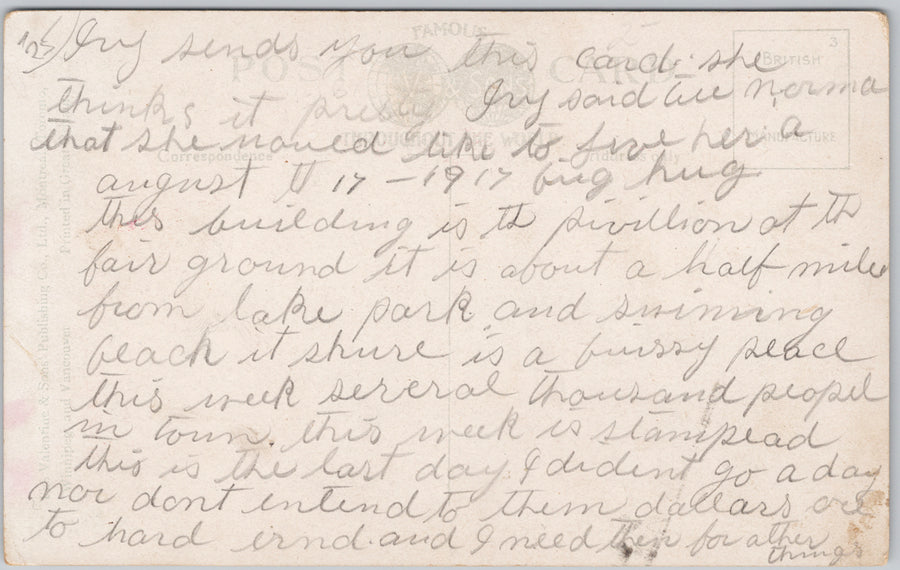 Ivy sends you this card. she
thinks it pretty Ivy said tell norma
that she would like to give her a
august 17 - 1917 big hug
this building is th pivillion at th
fair ground it is about a half mile
from lake park and swiming
beach it shure is a buissy peace
this week several thousand peopel
in town. this week is stampead
this is the last day I dident go a day
nor dont intend to them dallars are
to hard ernd. and I need them for ather
things
FAMOUS
POST CARD
THROUGHOUT THE WORLD
Correspondence
Address only
BRITISH
MANUFACTURE
3
Valentine & Sons Publishing Co., Ltd., Montreal, Toronto,
Winnipeg and Vancouver
Printed in Great